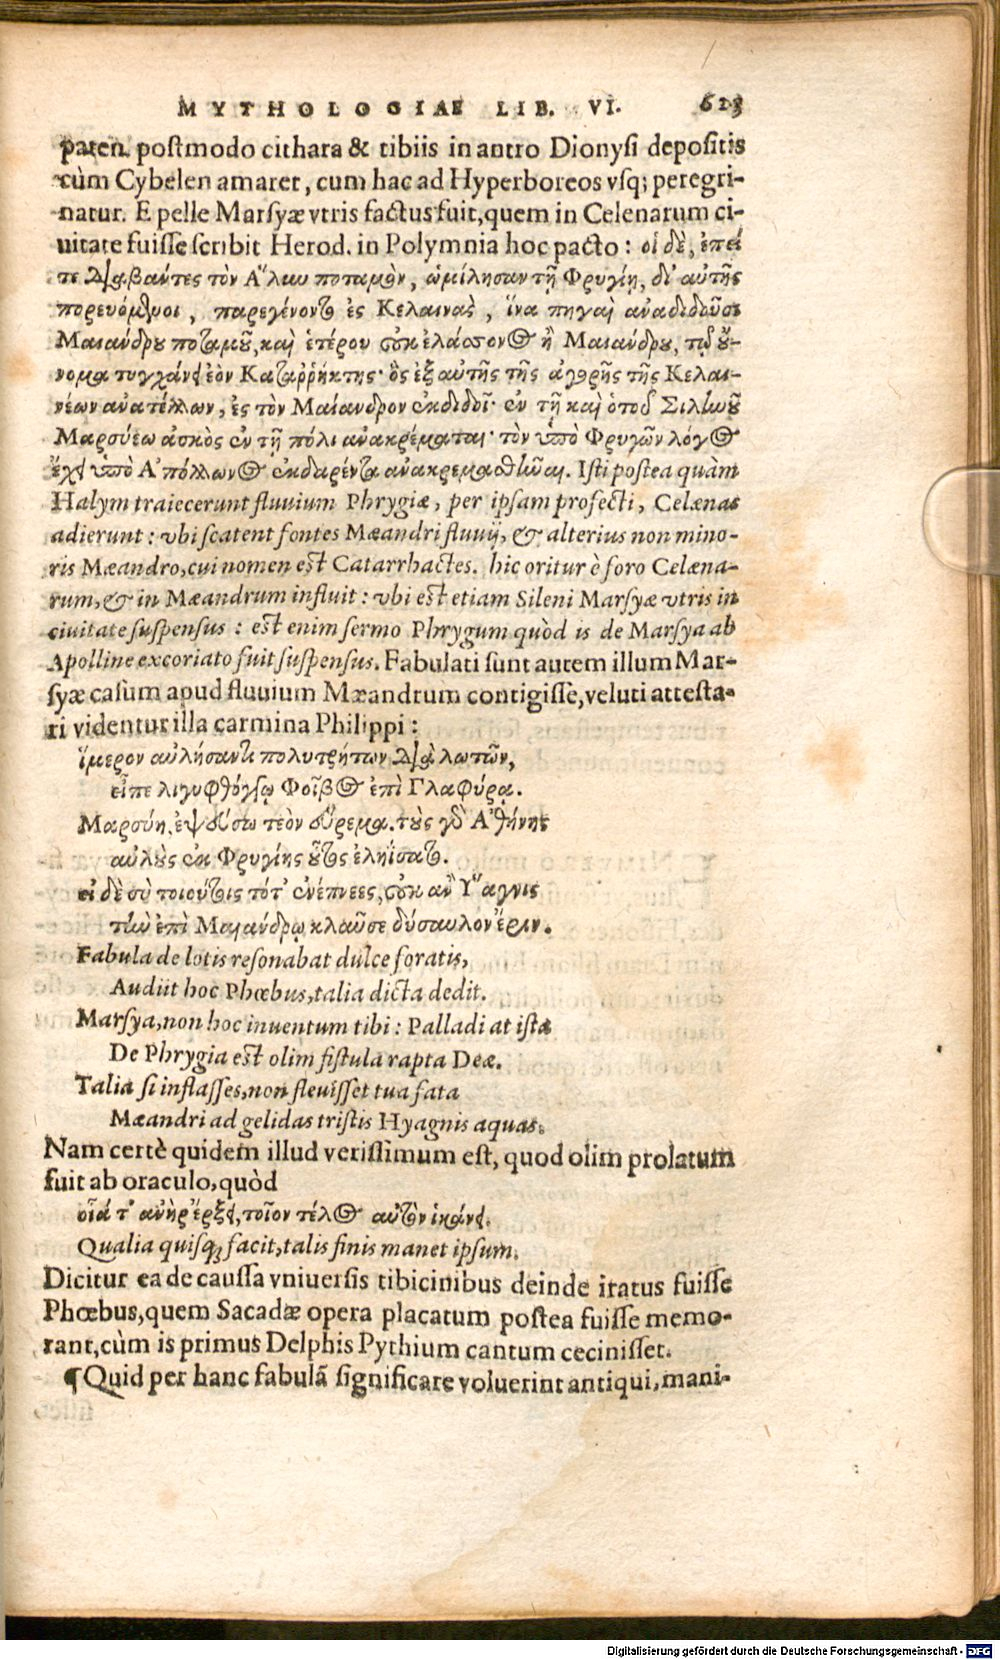 MYTHOLOGIAE LIB. VI. 623
paten. postmodo cithara & tibiis in antro Dionysi depositis
cùm Cybelen amaret, cum hac ad Hyperboreos vsq; peregri-
natur. E pelle Marsyæ vtris factus fuit, quem in Celenarum ci-
uitate fuisse scribit Herod. in Polymnia hoc pacto: οἱ δὲ, ἐπεί
τε διαβάντες τὸν Ἅλυν ποταμὸν, ὡμίλησαν τῇ Φρυγίῃ, δι' αὐτῆς
πορευόμενοι, παρεγένοντο ἐς Κελαινὰς, ἵνα πηγαὶ ἀναδιδοῦσι
Μαιάνδρου ποταμοῦ, καὶ ἑτέρου οὐκ ἐλάσσονος ἢ Μαιάνδρου, τῷ οὔ-
νομα τυγχάνει ἐὸν Καταῤῥήκτης· ὃς ἐξ αὐτῆς τῆς ἀγορῆς τῆς Κελαι-
νέων ἀνατέλλων, ἐς τὸν Μαίανδρον ἐκδιδοῖ· ἐν τῇ καὶ ὁ τοῦ Σιληνοῦ
Μαρσύεω ἀσκὸς ἐν τῇ πόλι ἀνακρέμαται· τὸν ὑπὸ Φρυγῶν λόγος
ἔχει ὑπὸ Ἀπόλλωνος ἐκδαρέντα ἀνακρεμασθῆναι. Isti postea quàm
Halym traiecerunt fluuium Phrygiæ, per ipsam profecti, Celænas
adierunt: vbi scatent fontes Mæandri fluuij, & alterius non mino-
ris Mæandro, cui nomen est Catarrhactes. hic oritur è foro Celæna-
rum, & in Mæandrum influit: vbi est etiam Sileni Marsyæ vtris in
ciuitate suspensus: est enim sermo Phrygum quòd is de Marsya ab
Apolline excoriato fuit suspensus. Fabulati sunt autem illum Mar-
syæ casum apud fluuium Mæandrum contigisse, veluti attesta-
ri videntur illa carmina Philippi:
ἵμερον αὐλήσαντι πολυτρήτων διὰ λωτῶν,
εἶπε λιγυφθόγγῳ Φοῖβος ἐπὶ Γλαφύρᾳ.
Μαρσύη, ἐψεύσω τεὸν εὕρεμα. τοὺς γὰρ Ἀθήνης
αὐλοὺς ἐκ Φρυγίης οὗτος ἐληΐσατο.
εἰ δὲ σὺ τοιούτοις τότ' ἐνέπνεες, οὐκ ἂν Ὕαγνις
τὴν ἐπὶ Μαιάνδρῳ κλαῦσε δύσαυλον ἔριν.
Fabula de lotis resonabat dulce foratis,
Audiit hoc Phœbus, talia dicta dedit.
Marsya, non hoc inuentum tibi: Palladi at ista
De Phrygia est olim fistula rapta Deæ.
Talia si inflasses, non fleuisset tua fata
Mæandri ad gelidas tristis Hyagnis aquas.
Nam certè quidem illud verissimum est, quod olim prolatum
fuit ab oraculo, quòd
οἷά τ' ἀνὴρ ἔρξει, τοῖον τέλος αὐτὸν ἱκάνει.
Qualia quisq; facit, talis finis manet ipsum.
Dicitur ea de caussa vniuersis tibicinibus deinde iratus fuisse
Phœbus, quem Sacadæ opera placatum postea fuisse memo-
rant, cùm is primus Delphis Pythium cantum cecinisset.
¶ Quid per hanc fabulã significare voluerint antiqui, mani-
Digitalisierung gefördert durch die Deutsche Forschungsgemeinschaft - DFG